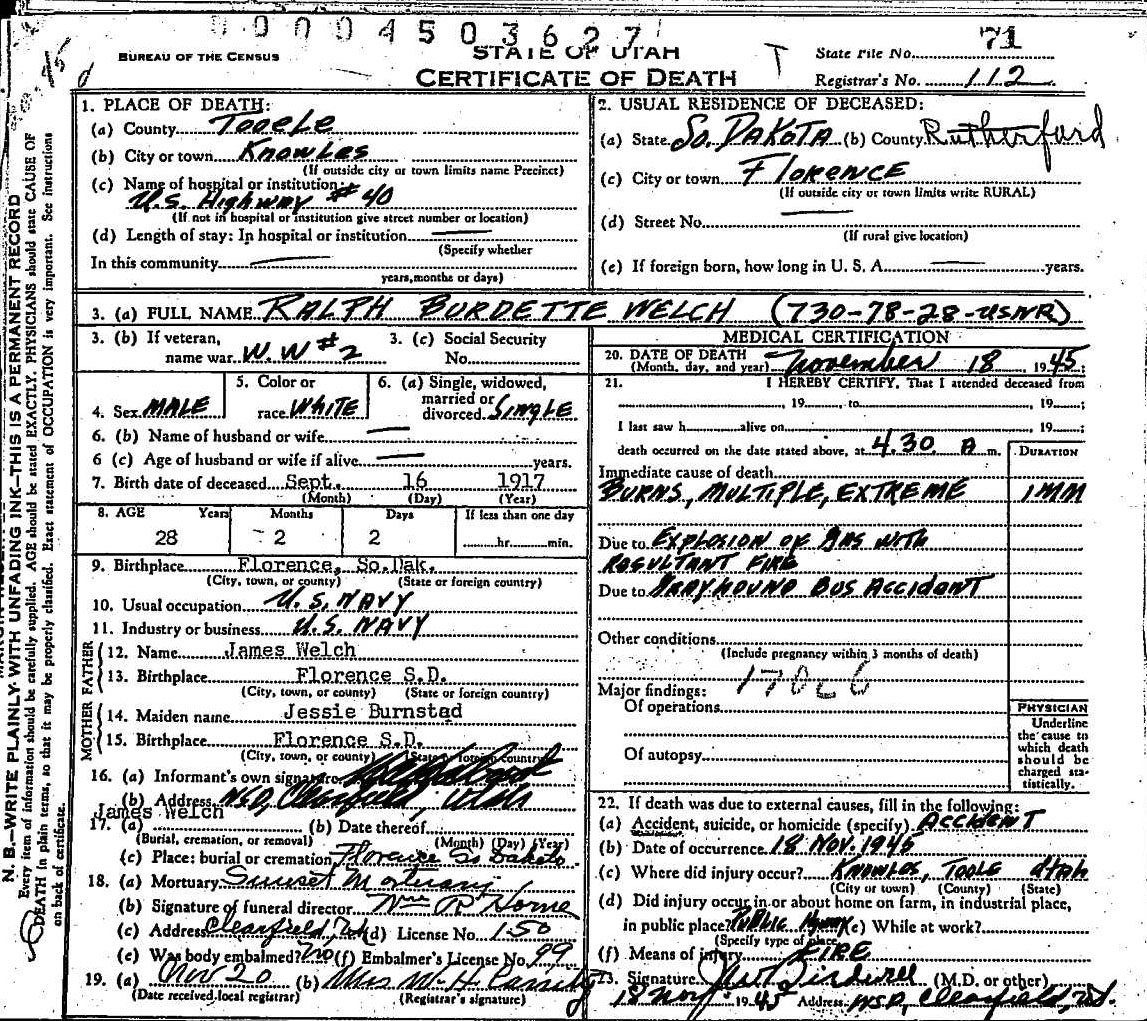 00004503627
BUREAU OF THE CENSUS
STATE OF UTAH
CERTIFICATE OF DEATH
State File No. 71
Registrar's No. 112
1. PLACE OF DEATH:
(a) County Tooele
(b) City or town Knowles
(If outside city or town limits name Precinct)
(c) Name of hospital or institution:
U.S. Highway #40
(If not in hospital or institution give street number or location)
(d) Length of stay: In hospital or institution
(Specify whether
In this community
years, months or days)
2. USUAL RESIDENCE OF DECEASED:
(a) State So. Dakota (b) County Rutherford
(c) City or town Florence
(If outside city or town limits write RURAL)
(d) Street No.
(If rural give location)
(e) If foreign born, how long in U. S. A. years.
3. (a) FULL NAME RALPH BURDETTE WELCH (730-78-28-USNR)
3. (b) If veteran,
name war W.W #2
3. (c) Social Security
No.
4. Sex MALE
5. Color or
race WHITE
6. (a) Single, widowed,
married or
divorced SINGLE
6. (b) Name of husband or wife
6 (c) Age of husband or wife if alive years.
7. Birth date of deceased Sept. 16 1917
(Month) (Day) (Year)
8. AGE Years Months Days If less than one day
28 2 2 hr. min.
9. Birthplace Florence, So.Dak.
(City, town, or county) (State or foreign country)
10. Usual occupation U.S. NAVY
11. Industry or business U.S. NAVY
FATHER
12. Name James Welch
13. Birthplace Florence S.D.
(City, town, or county) (State or foreign country)
MOTHER
14. Maiden name Jessie Burnstad
15. Birthplace Florence S.D.
(City, town, or county) (State or foreign country)
16. (a) Informant's own signature
(b) Address NSD, Clearfield, Utah
James Welch
17. (a) (b) Date thereof
(Burial, cremation, or removal) (Month) (Day) (Year)
(c) Place: burial or cremation Florence So Dakota
18. (a) Mortuary Sunset Mortuary
(b) Signature of funeral director Wm R Horne
(c) Address Clearfield, Ut (d) License No. 150
(e) Was body embalmed? No (f) Embalmer's License No. 99
19. (a) Nov 20 (b) Mrs W. H.
(Date received local registrar) (Registrar's signature)
MEDICAL CERTIFICATION
20. DATE OF DEATH
(Month, day, and year) November 18 1945;
21. I HEREBY CERTIFY, That I attended deceased from
, 19 , to , 19 ;
I last saw h alive on , 19 ;
death occurred on the date stated above, at 4.30 A m.
DURATION
Immediate cause of death
BURNS, MULTIPLE, EXTREME 1 MM
Due to Explosion of gas with
resultant fire
Due to Grayhound Bus Accident
Other conditions
(Include pregnancy within 3 months of death)
170c6
Major findings:
Of operations
Of autopsy
PHYSICIAN
Underline
the cause to
which death
should be
charged sta-
tistically.
22. If death was due to external causes, fill in the following:
(a) Accident, suicide, or homicide (specify) ACCIDENT
(b) Date of occurrence 18 Nov. 1945
(c) Where did injury occur? Knowles, Toole Utah
(City or town) (County) (State)
(d) Did injury occur in or about home on farm, in industrial place,
in public place? Public Hgwy (e) While at work?
(Specify type of place
(f) Means of injury FIRE
23. Signature (M.D. or other)
18 Nov 1945 Address NSD, Clearfield, Ut.
N. B.—WRITE PLAINLY WITH UNFADING INK—THIS IS A PERMANENT RECORD
Every item of information should be carefully supplied. AGE should be stated EXACTLY. PHYSICIANS should state CAUSE OF
DEATH in plain terms, so that it may be properly classified. Exact statement of OCCUPATION is very important. See instructions
on back of certificate.